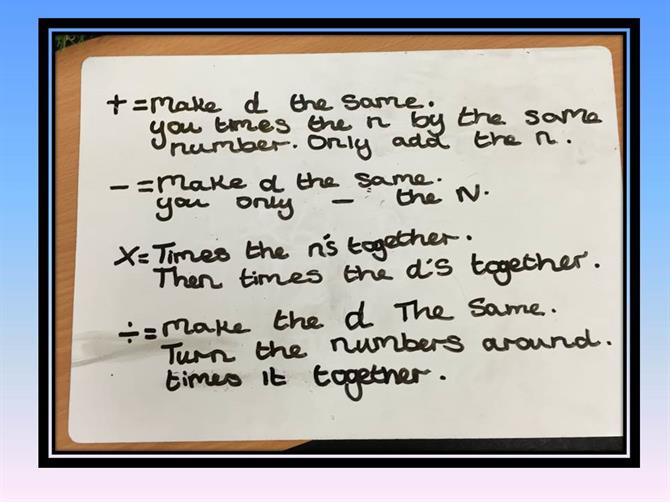 + = Make d the same.
you times the n by the same
number. Only add the n.
- = Make d the same.
you only - the N.
X= Times the n's together.
Then times the d's together.
÷ = Make the d The Same.
Turn the numbers around.
times it together.